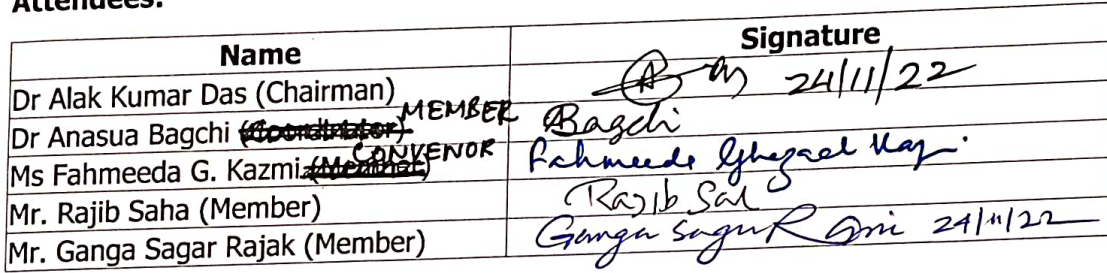 Attendees:
Name Signature
Dr Alak Kumar Das (Chairman) 24/11/22
Dr Anasua Bagchi (Coordinator) MEMBER Bagchi
Ms Fahmeeda G. Kazmi (Member) CONVENOR Fahmeeda Ghazal
Mr. Rajib Saha (Member) Rajib
Mr. Ganga Sagar Rajak (Member) Ganga Sagar 24/11/22